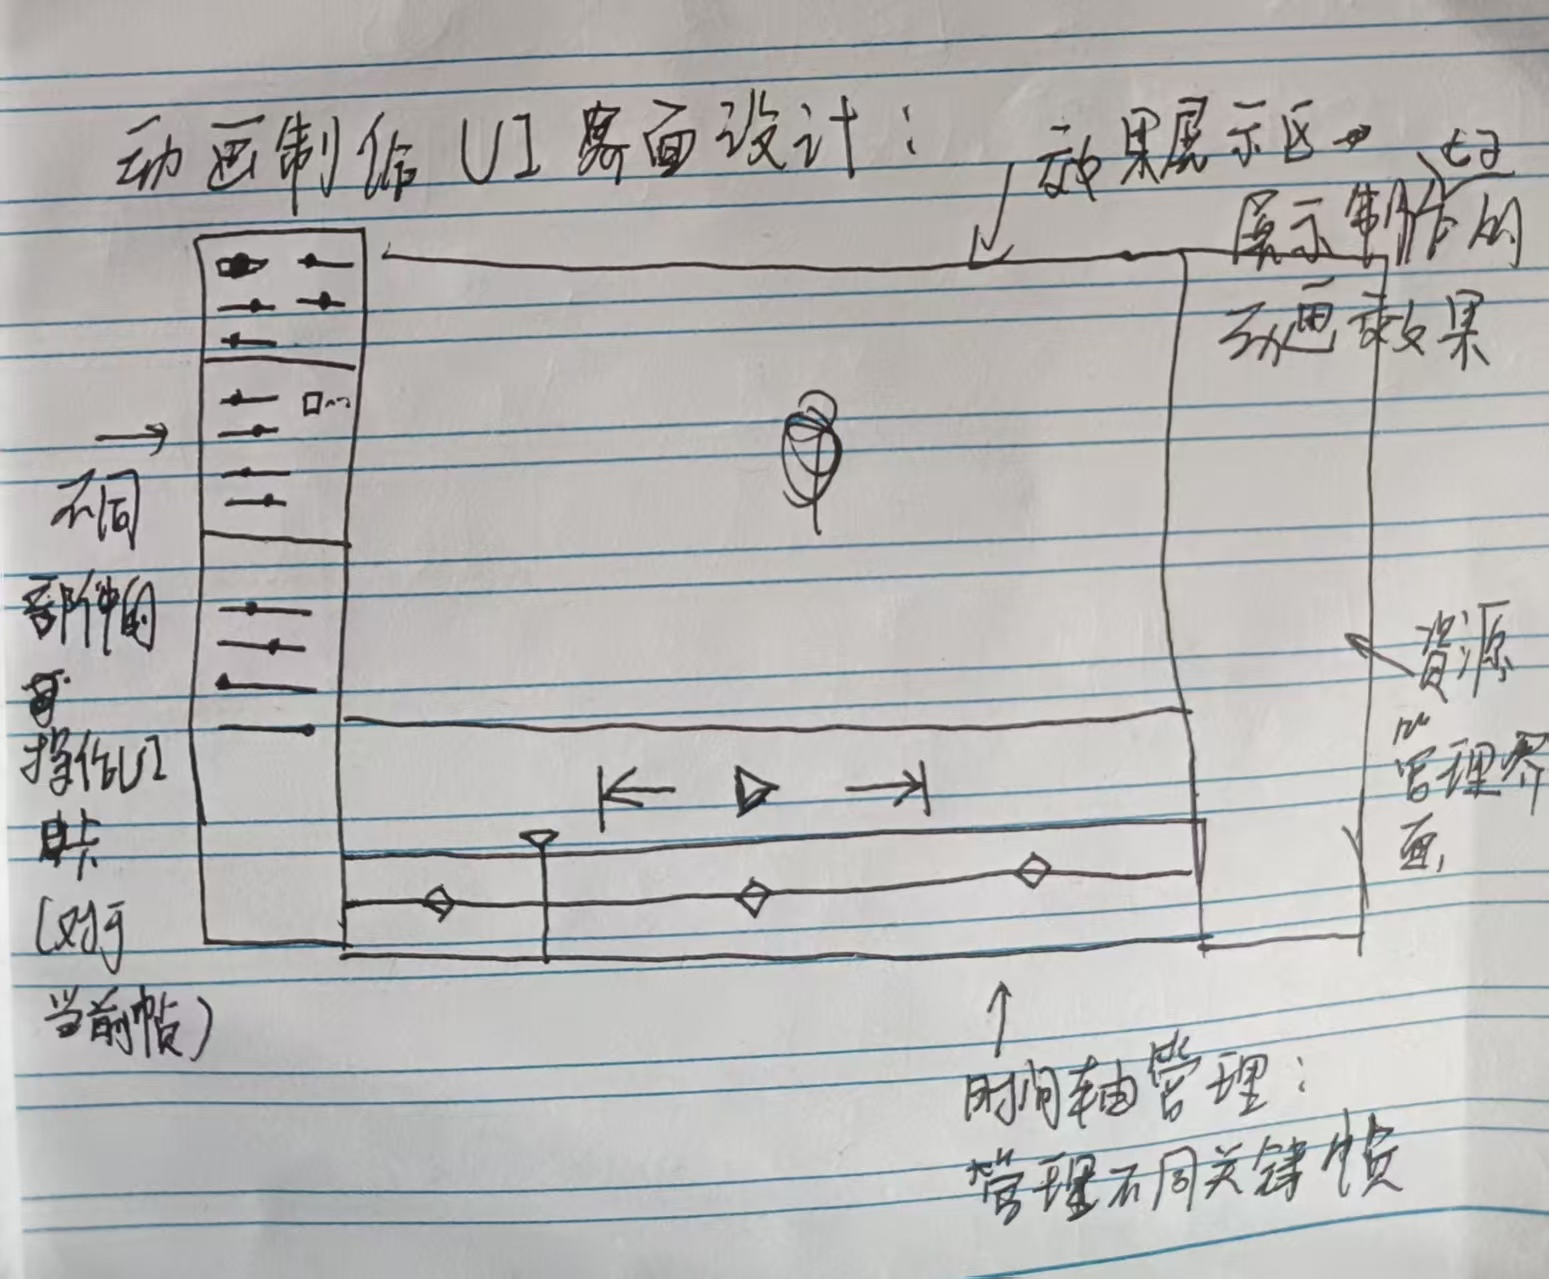 动画制作UI界面设计：
效果展示区
展示制作的
动画效果
不同
部件的
操作UI
卡
（对于
当前帧）
资源
管理界
面
时间轴管理：
管理不同关键帧